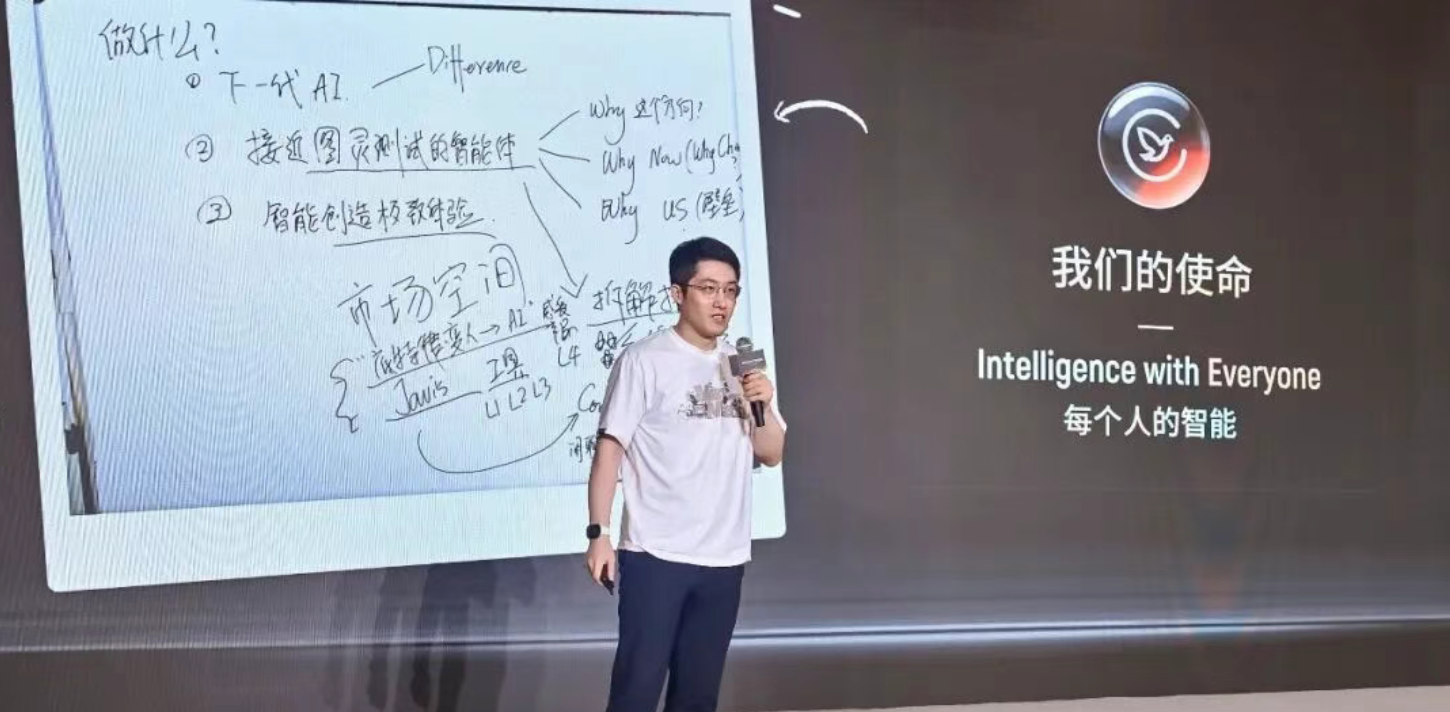 做什么?
① 下一代 AI. Difference
② 接近图灵测试的智能体
Why 这个方向?
Why Now (Why Cha
Why US (壁垒)
③ 智能创造极致体验.
市场空间
拆解
变人→AI
L4
Javis 工具
L1 L2 L3
我们的使命
Intelligence with Everyone
每个人的智能